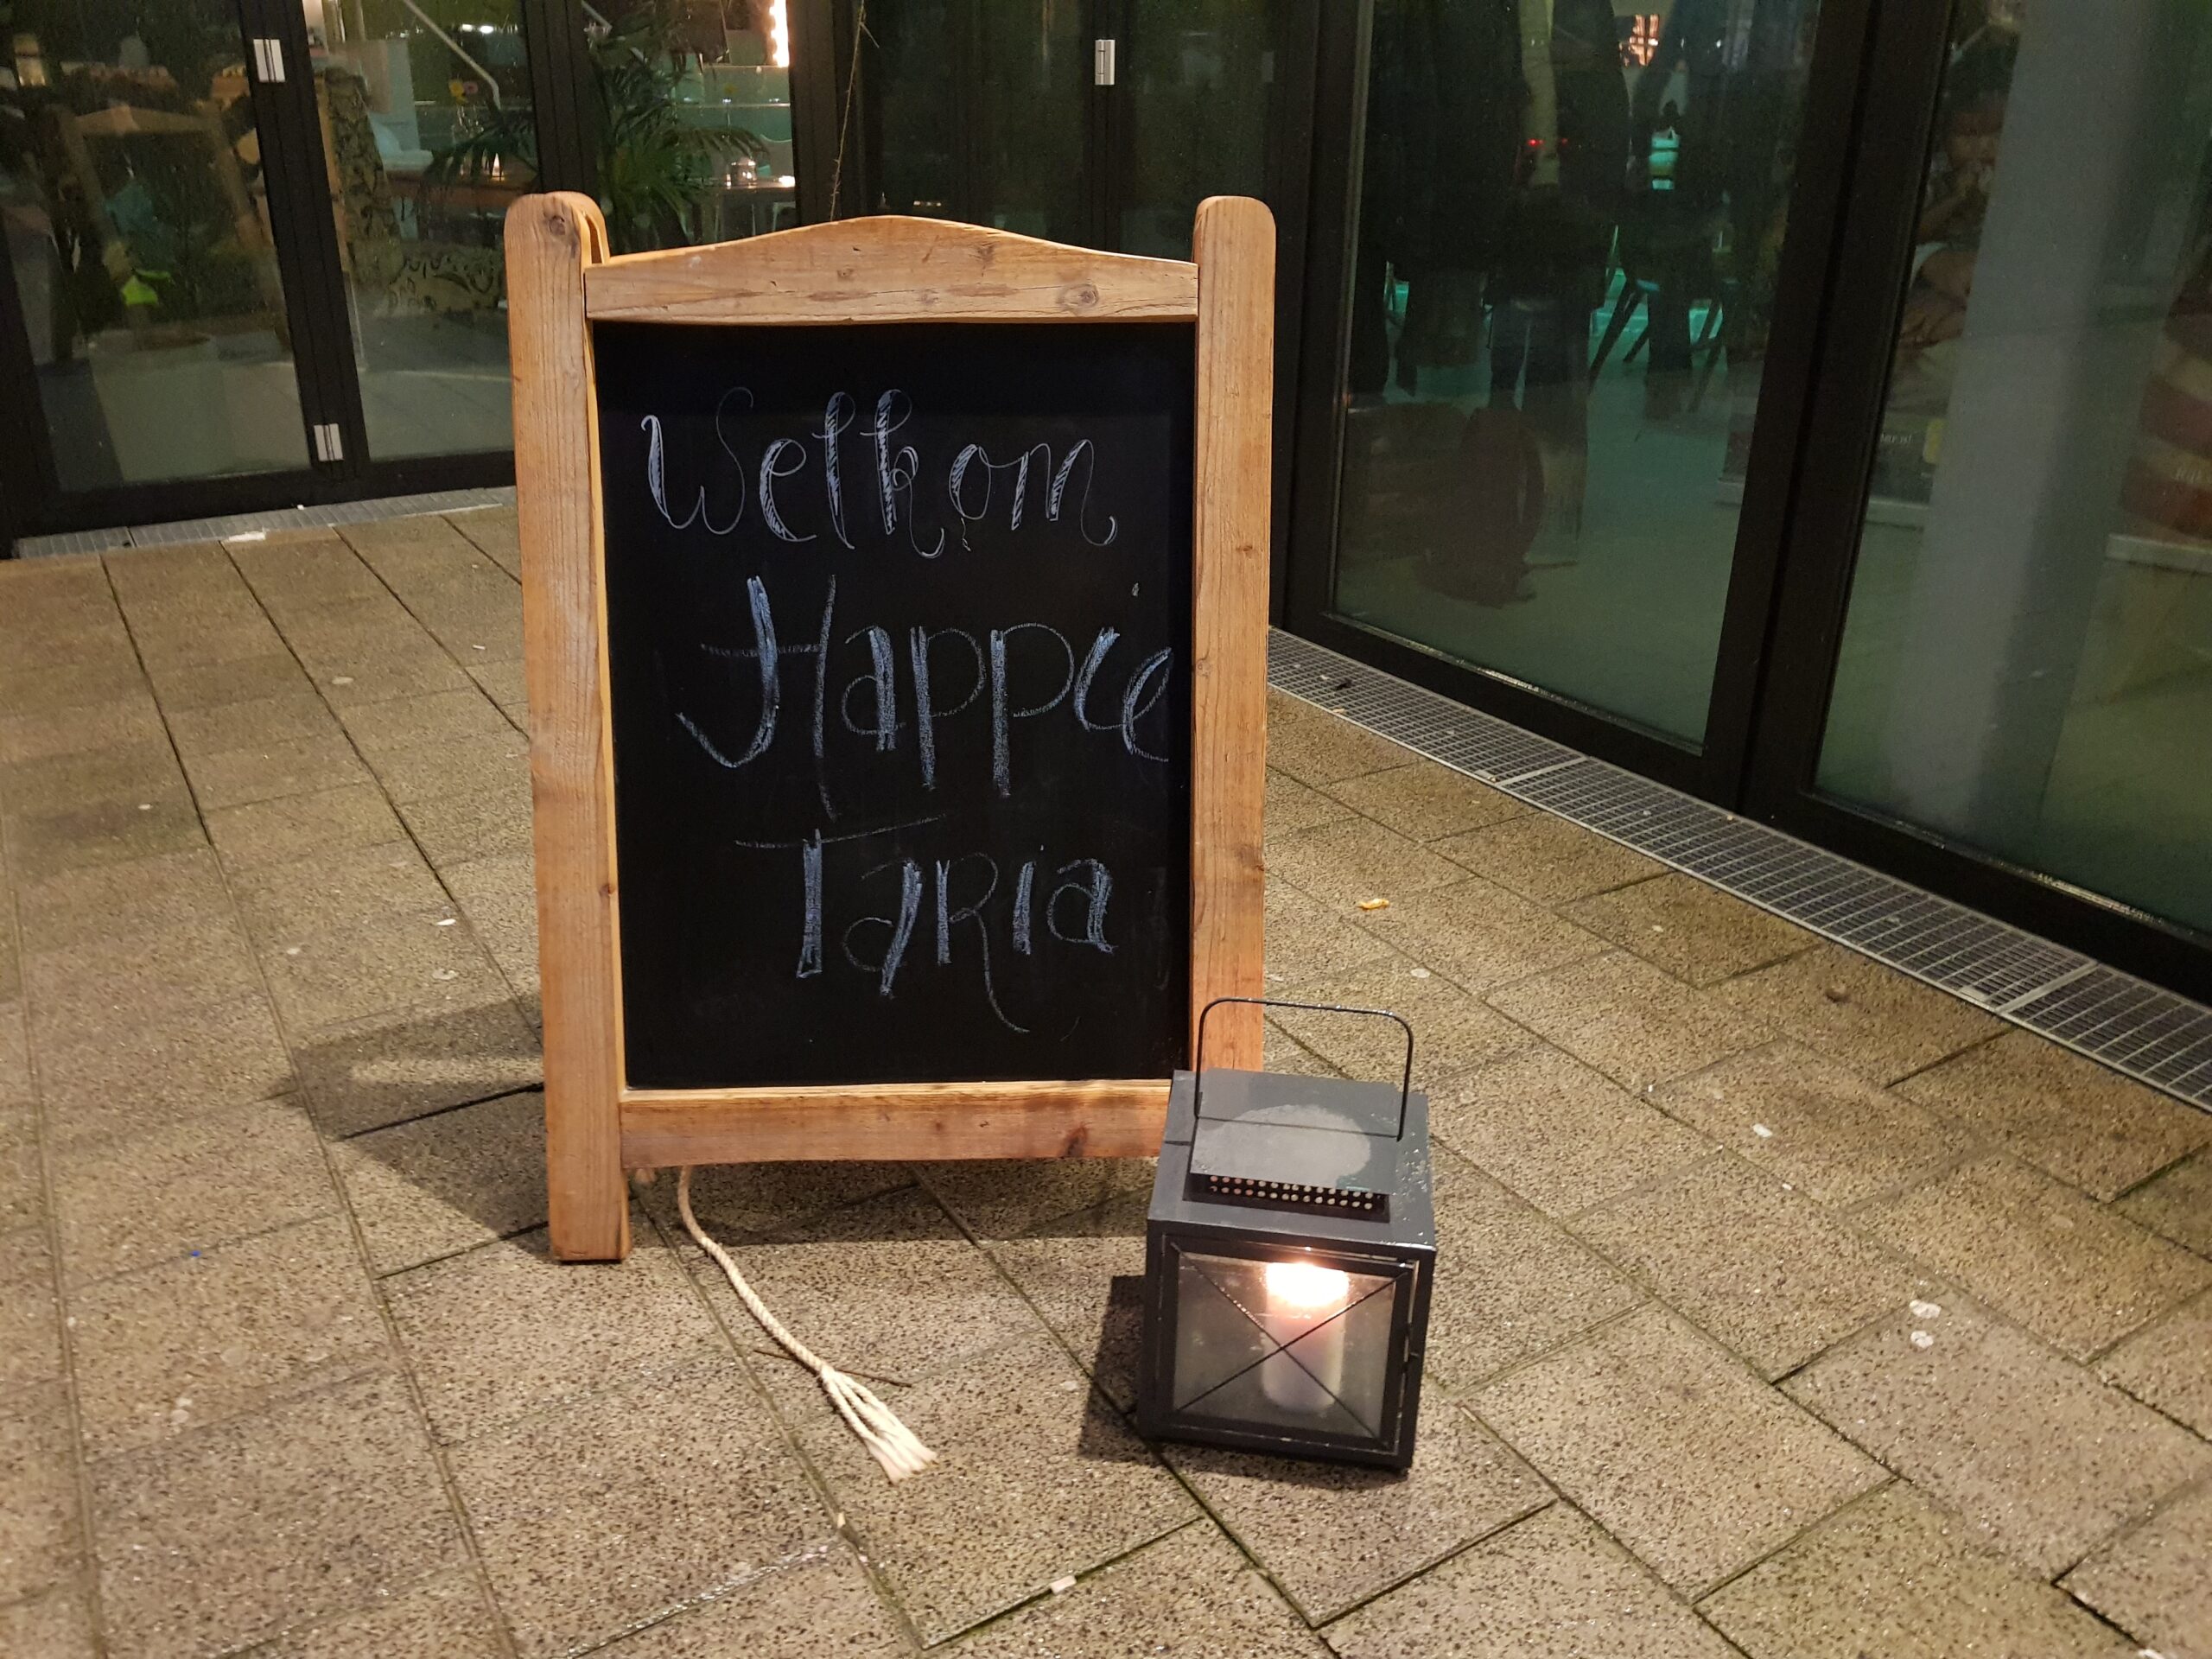 Welkom
Happie
TaRia